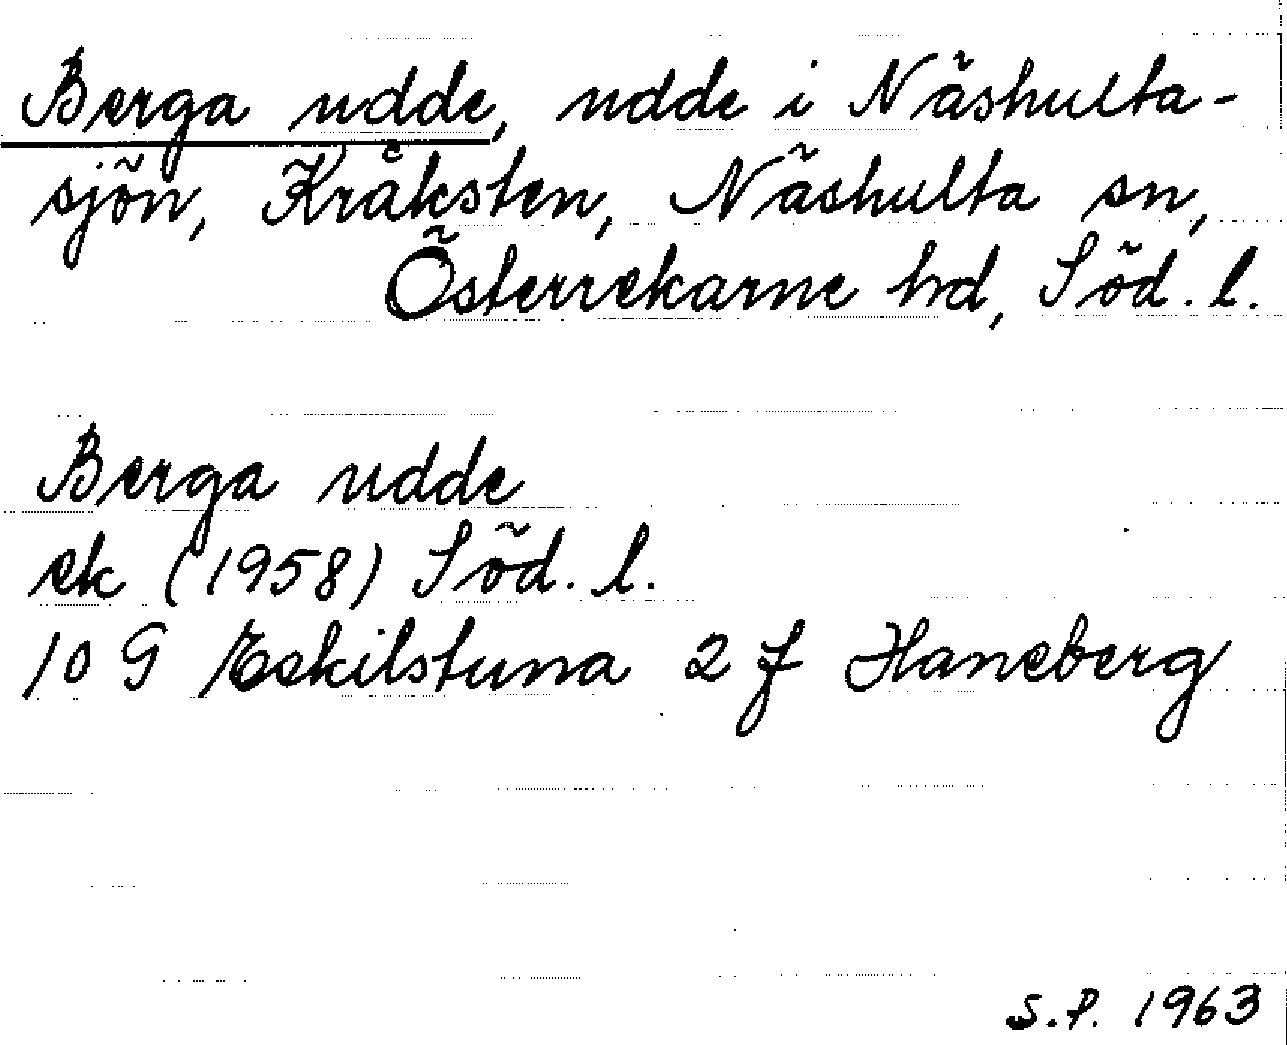 Berga udde, udde i Näshulta-
sjön, Kråksten, Näshulta sn,
Österrekarne hd, Söd. l.
Berga udde
ek (1958) Söd. l.
10 G Eskilstuna 2 f Haneberg
S.P. 1963